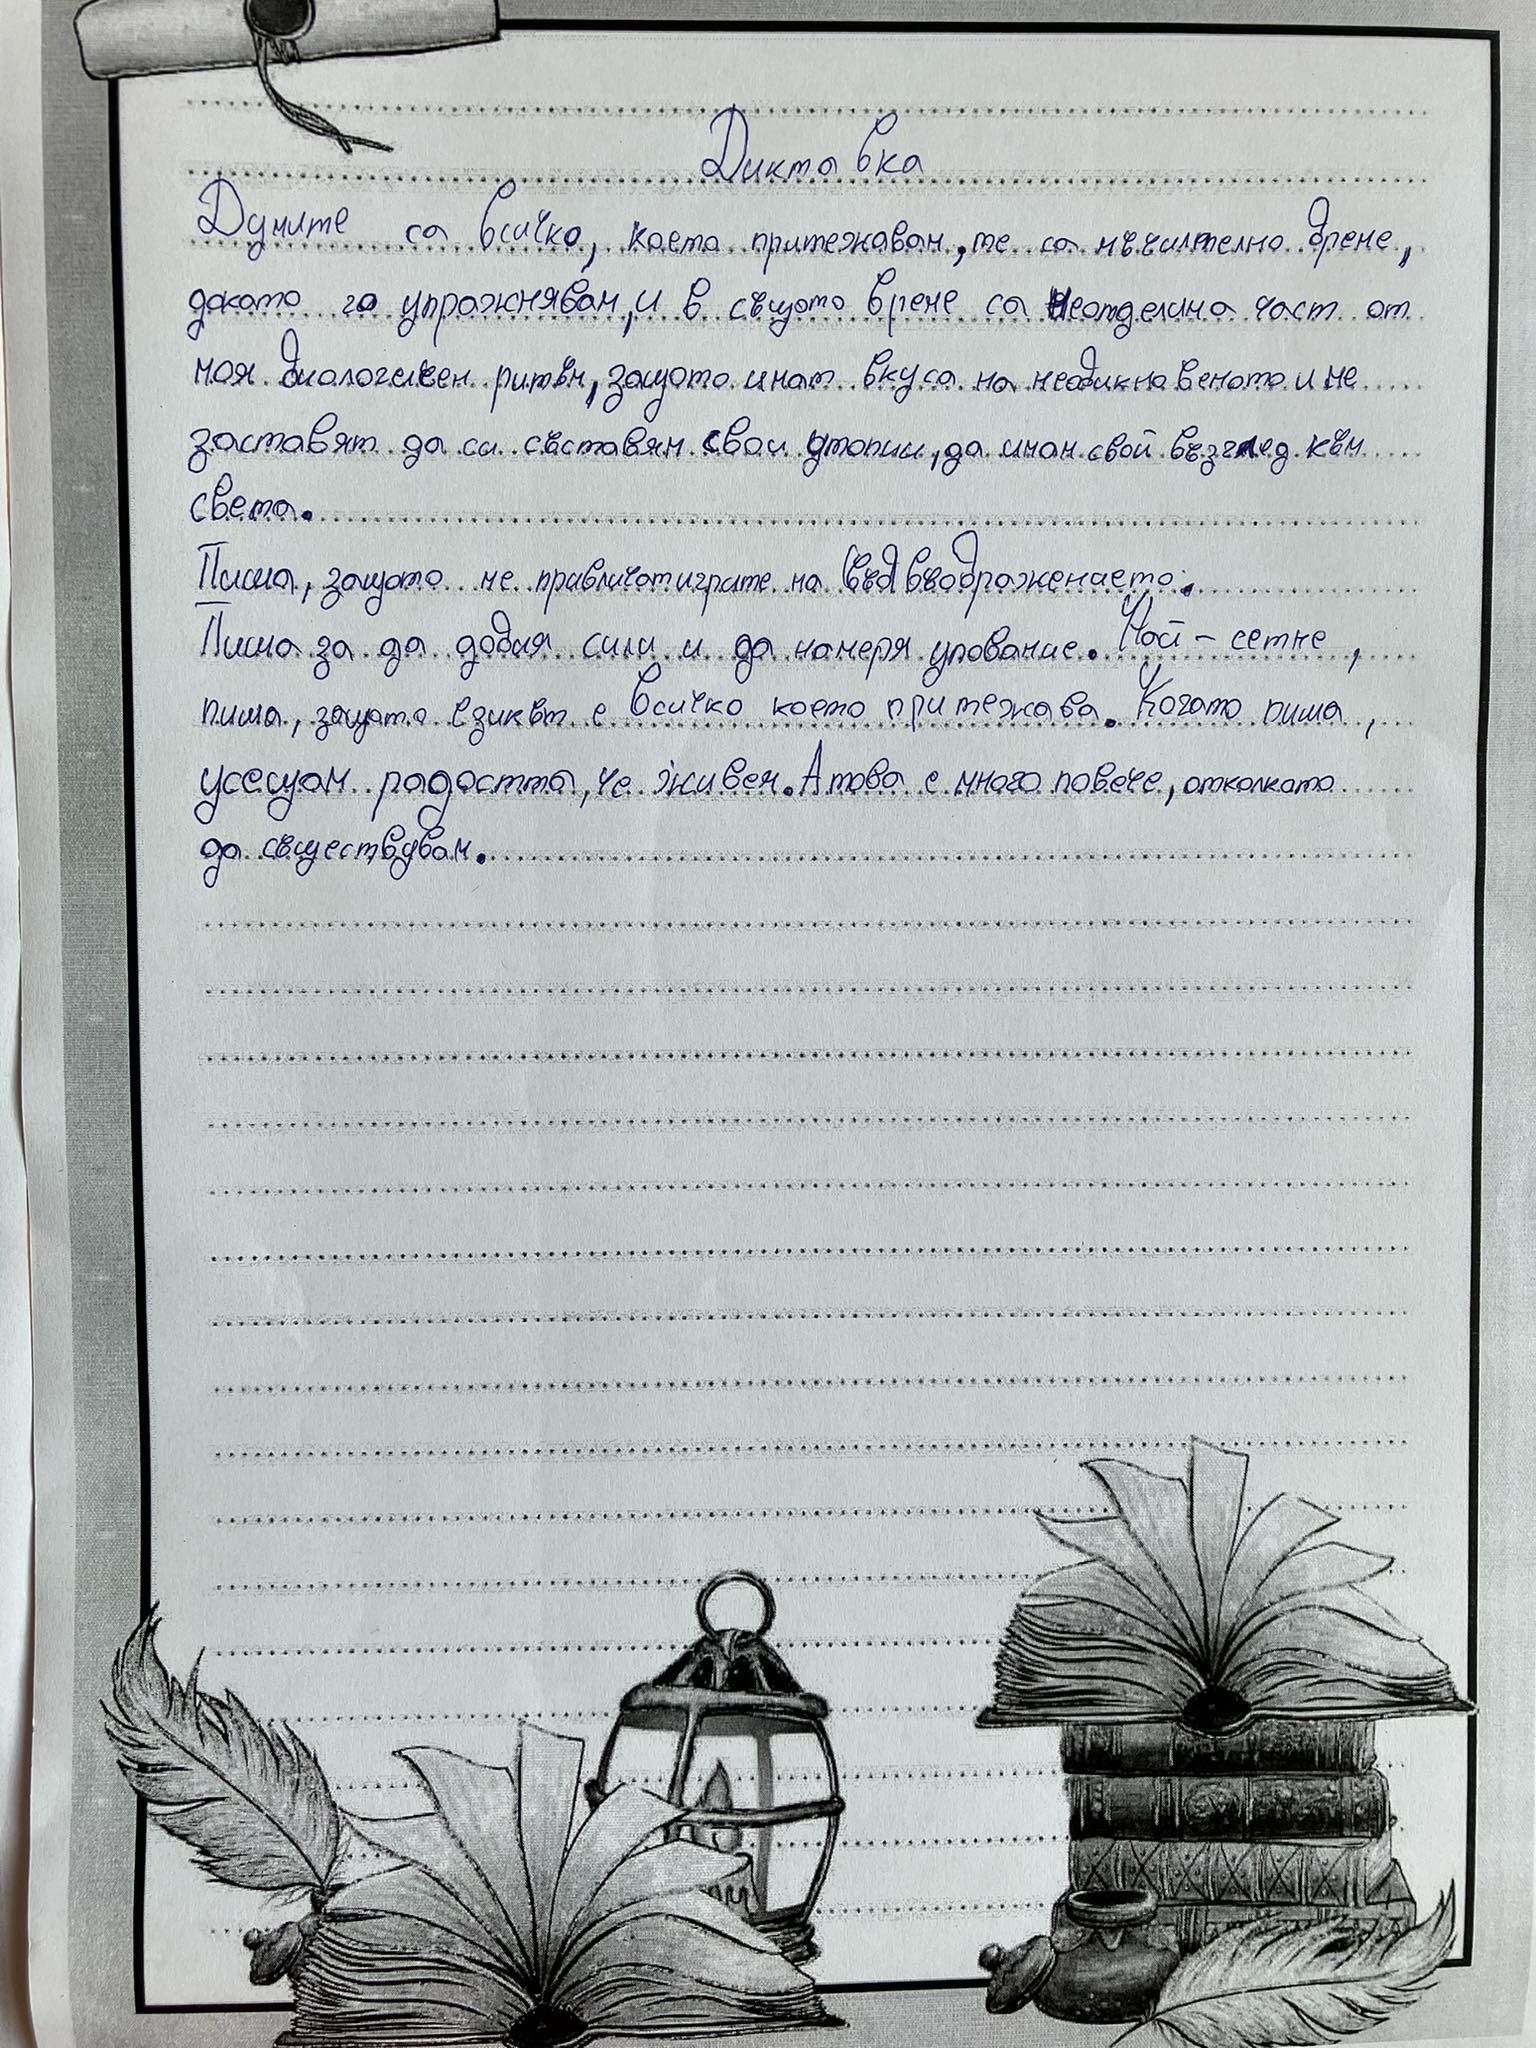 Диктавка
Думите са всичко, което притежавам, те са мъчително бреме,
докато го упражнявам, и в същото време са неотделима част от
моя биологичен ритъм, защото имат вкуса на необикновеното и ме
заставят да си съставям свои утопии, да имам свой възглед към
света.
Пиша, защото ме привличат игрите на въображението.
Пиша за да добия сили и да намеря упование. Най-сетне,
пиша, защото езикът е всичко което притежава. Когато пиша,
усещам радостта, че живея. А това е много повече, отколкото
да съществувам.